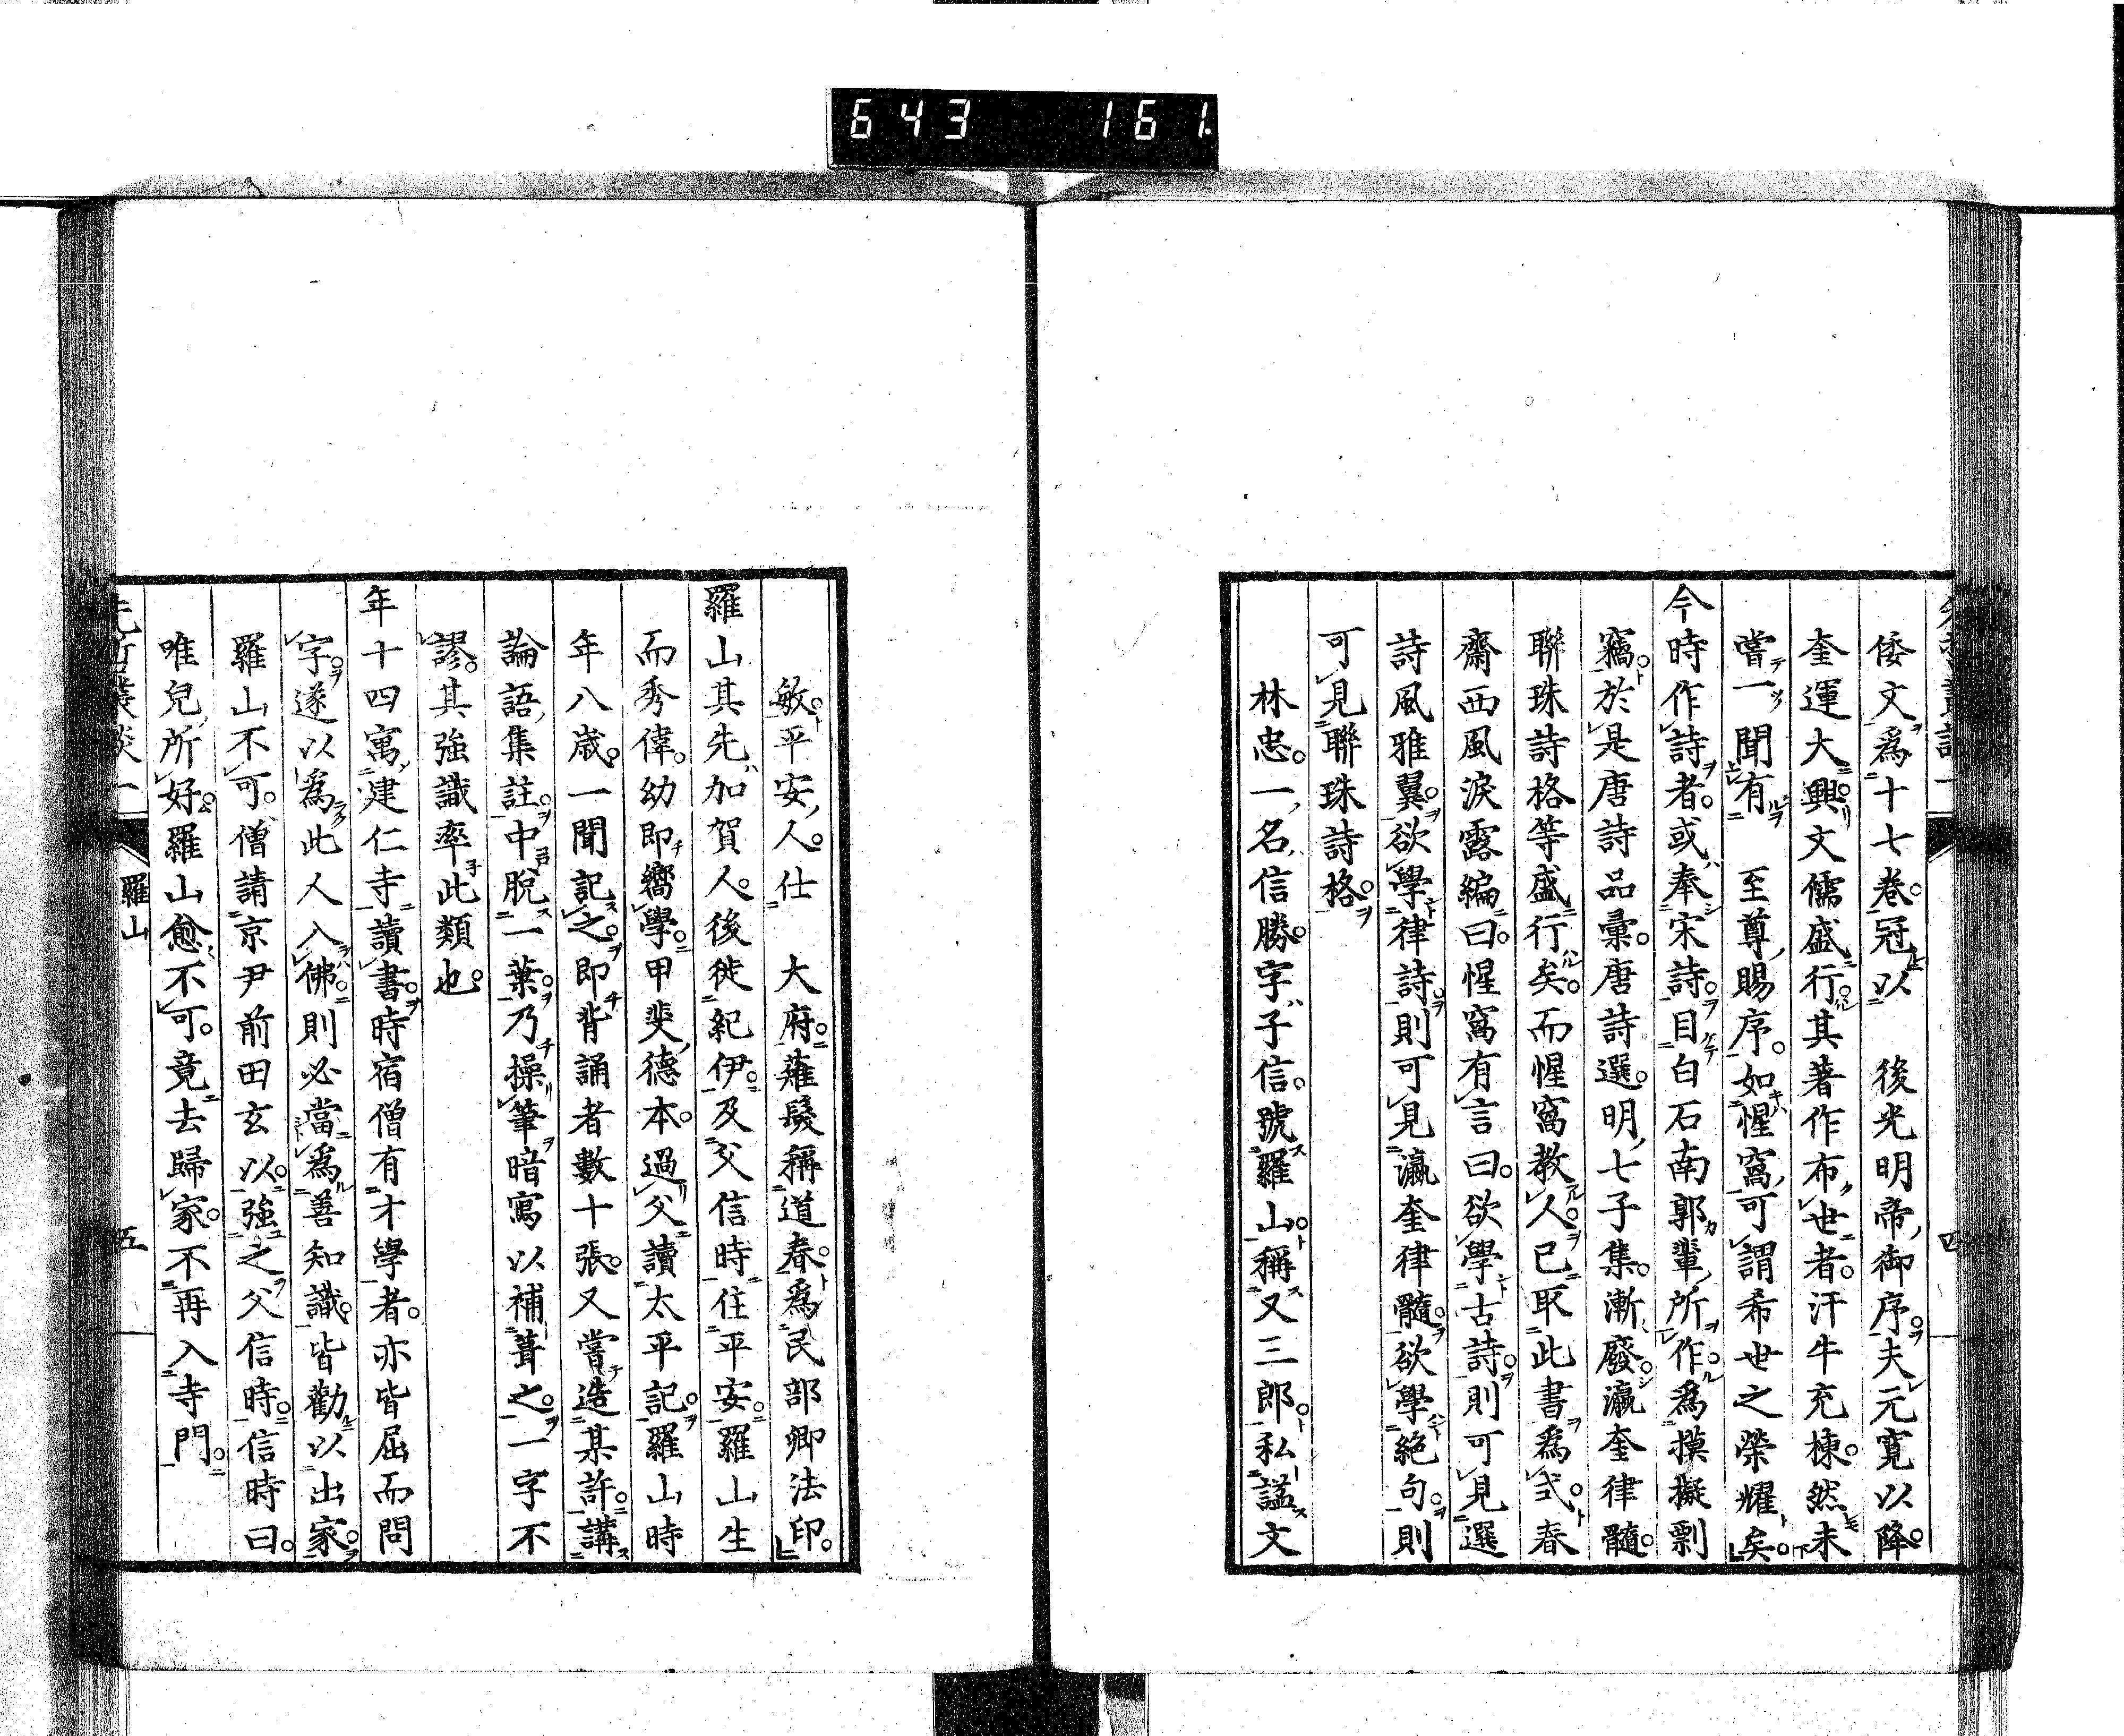 643 161
倭文爲十七卷。冠以 後光明帝御序。夫元寛以降。
奎運大興。文儒盛行。其著作布世者。汗牛充棟。然未
嘗一聞有 至尊賜序。如惺窩。可謂希世之榮耀矣。
今時作詩者。或奉宋詩。目白石南郭輩所作。爲摸擬剽
竊。於是唐詩品彙。唐詩選。明七子集。漸廢。瀛奎律髓。
聯珠詩格等盛行矣。而惺窩教人。已取此書爲式。春
齋西風淚露編曰。惺窩有言曰。欲學古詩。則可見選
詩風雅翼。欲學律詩。則可見瀛奎律髓。欲學絕句。則
可見聯珠詩格。
林忠。一名信勝。字子信。號羅山。稱又三郎。私謚文
四
敏。平安人。仕 大府。薙髮稱道春。爲民部卿法印。
羅山其先加賀人。後徙紀伊。及父信時住平安。羅山生
而秀偉。幼即嚮學。甲斐德本。過父讀太平記。羅山時
年八歲。一聞記之。即背誦者數十張。又嘗造某許。講
論語集註。中脫一葉。乃操筆暗寫以補葺之。一字不
謬。其強識率此類也。
年十四寓建仁寺讀書。時宿僧有才學者。亦皆屈而問
字。遂以爲此人入佛。則必當爲善知識。皆勸以出家。
羅山不可。僧請京尹前田玄以。強之父信時。信時曰。
唯兒所好。羅山愈不可。竟去歸家。不再入寺門。
羅山
五